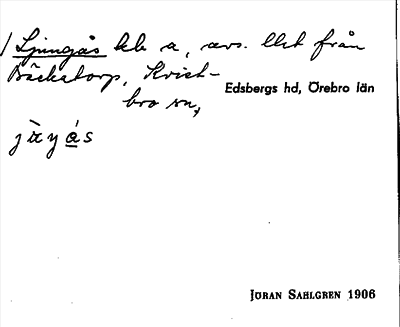 Ljungås kb a, avs. llst från
Bäckatorp, Kvist-
bro sn,
Edsbergs hd, Örebro län
JÖRAN SAHLGREN 1906